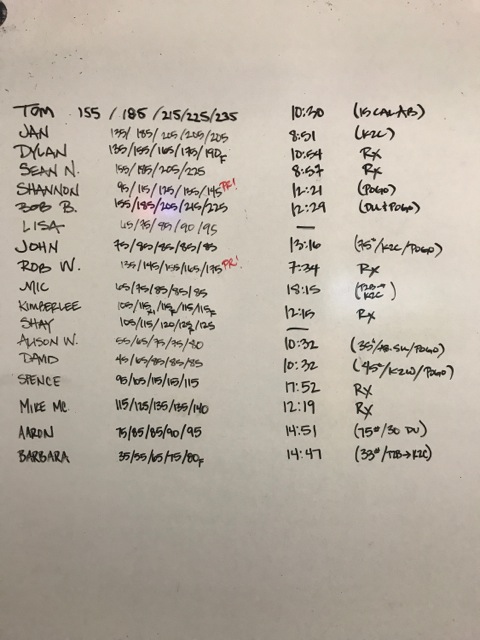 TOM 155 / 185 / 215/225/235 10:30 (15 CAL AB)
JAN 135/ 185/ 205 /205/205 8:51 (K2C)
DYLAN 135/155/165/175/190F 10:54 Rx
SEAN N. 155/185/205/225 8:57 Rx
SHANNON 95/115/125/135/145 PR! 12:21 (POGO)
BOB B. 155/185/205/215/225 12:29 (DU→POGO)
LISA 65/75/85/90/95 —
JOHN 75/85/85/85/85 13:16 (75#/K2C/POGO)
ROB W. 135/145/155/165/175 PR! 7:34 Rx
MIC 65/75/85/85/85 18:15 (T2B→K2C)
KIMBERLEE 105/115/115F/115/115F 12:15 Rx
SHAY 105/115/120/125/125 —
ALISON W. 55/65/75/75/80 10:32 (35#/AB.SU/POGO)
DAVID 45/65/85/85/85 10:32 (45#/K2W/POGO)
SPENCE 95/105/115/115/115 17:52 Rx
MIKE MC. 115/125/135/135/140 12:19 Rx
AARON 75/85/85/90/95 14:51 (75#/30 DU)
BARBARA 35/55/65/75/80F 14:47 (33#/T2B→K2C)